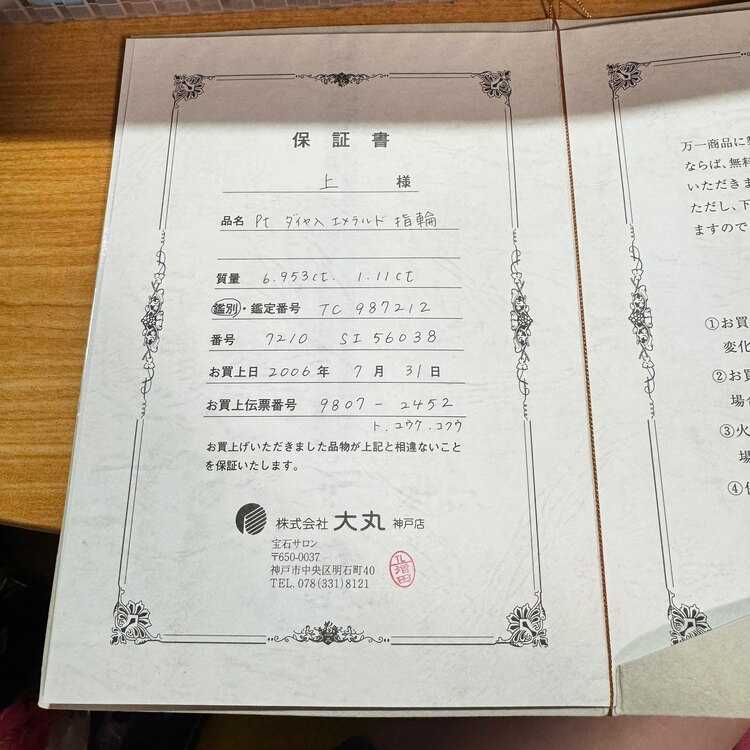 保証書
上 様
品名 Pt ダイヤ入 エメラルド 指輪
質量 6.953ct. 1.11ct
鑑別・鑑定番号 TC 987212
番号 7210 SI 56038
お買上日 2006 年 7 月 31 日
お買上伝票番号 9807 - 2452
ト.ユウケ.コフウ
お買上げいただきました品物が上記と相違ないこと
を保証いたします。
株式会社 大丸 神戸店
宝石サロン
〒650-0037
神戸市中央区明石町40
TEL. 078(331)8121
増田
万一商品に
ならば、無料
いただきま
ただし、下
ますので
①お買
変化
②お買
場合
③火
場
④